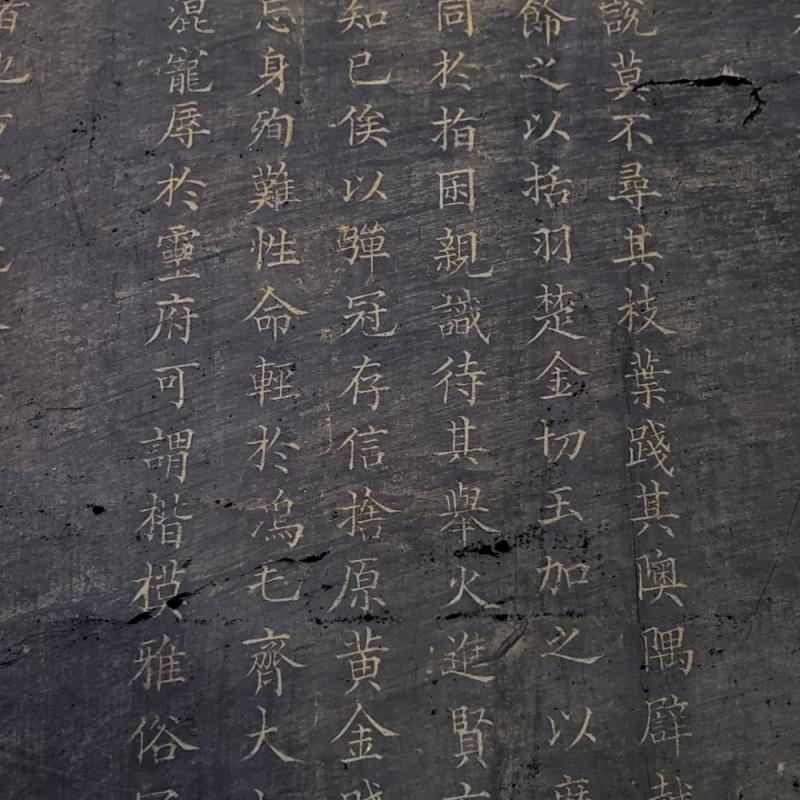 說莫不尋其枝葉踐其隩隅譬
餙之以括羽楚金切玉加之以磨
同於指囷親識待其舉火進賢
知己俟以彈冠存信捨原黃金賤
忘身殉難性命輕於鴻毛齊大
混寵辱於靈府可謂楷模雅俗